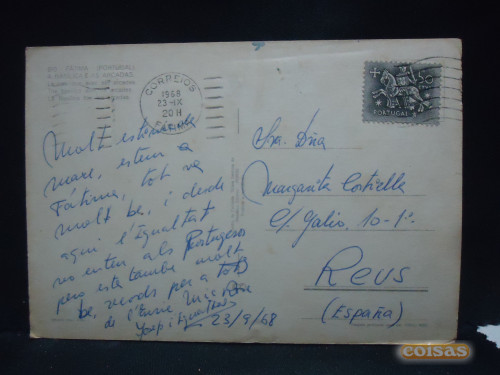 FÁTIMA (PORTUGAL)
CORREIOS
1968
23-IX
20H
PORTUGAL
Molt estimada
mare, estem a
Fátima, tot va
molt be, i desde
aqui l'Egualtat
no enten als Portugesos
pero esta tambe molt
be, records per a tots
de l'Enric
Josep i Egualtat
23/9/68
Sra. Dña
Margarita
C/. Galio, 10-1º.
Reus
(España)
coisas